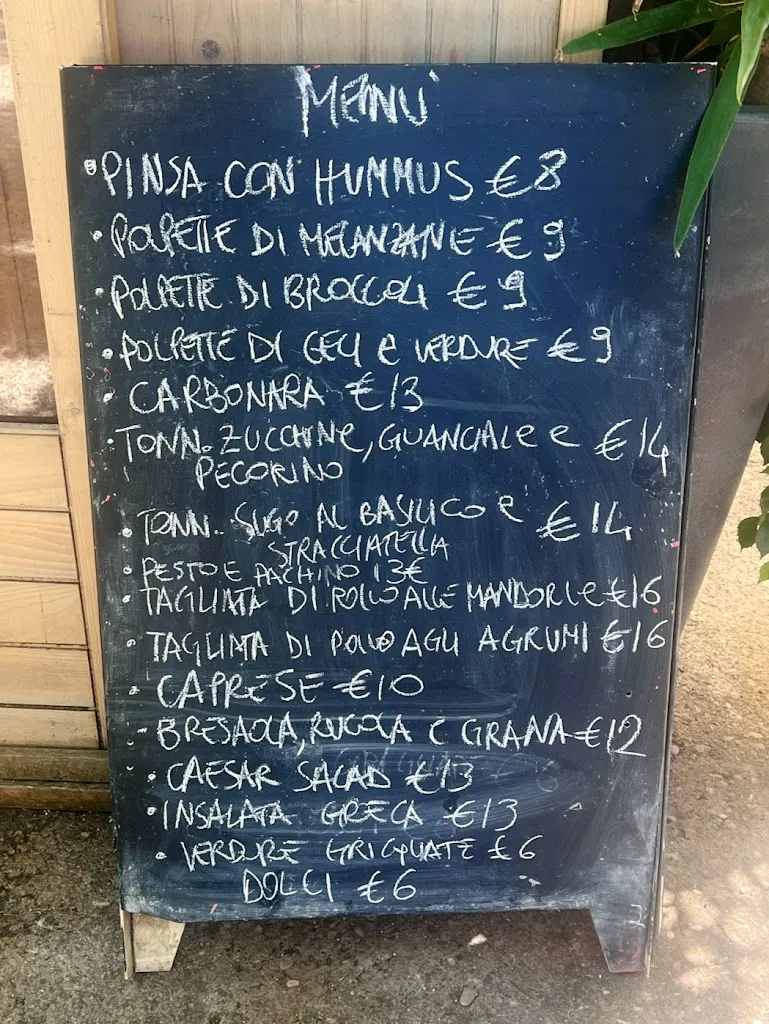 MENU'
• PINSA CON HUMMUS €8
• POLPETTE DI MELANZANE €9
• POLPETTE DI BROCCOLI €9
• POLPETTE DI CECI e VERDURE €9
• CARBONARA €13
• TONN. ZUCCHINe, GUANCIALe e €14
PECORINO
• TONN. SUGO AL BASILICO e €14
STRACCIATELLA
• PESTO E PACHINO 13€
• TAGLIATA DI POLLO ALLE MANDORLe €16
• TAGLIATA DI POLLO AGLI AGRUMI €16
• CAPRESE €10
• BRESAOLA, RUCOLA E GRANA €12
• CAESAR SALAD €13
• INSALATA GRECA €13
• VERDURE GRIGLIATE £6
DOLCI €6